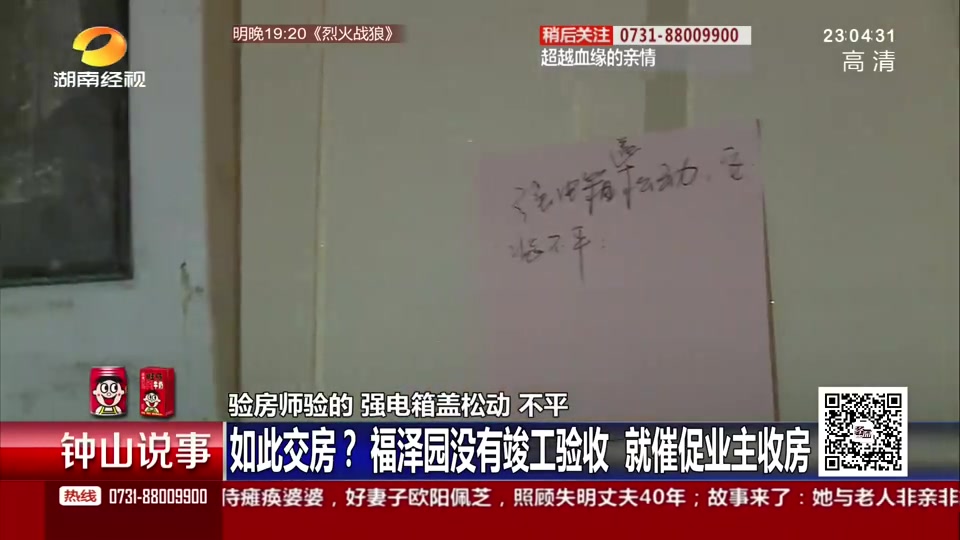 明晚19:20《烈火战狼》
稍后关注 0731-88009900
超越血缘的亲情
23:04:31
高清
湖南经视
强电箱盖松动、
不平
验房师验的 强电箱盖松动 不平
钟山说事
如此交房？福泽园没有竣工验收 就催促业主收房
热线 0731-88009900
侍瘫痪婆婆，好妻子欧阳佩芝，照顾失明丈夫40年；故事来了：她与老人非亲非